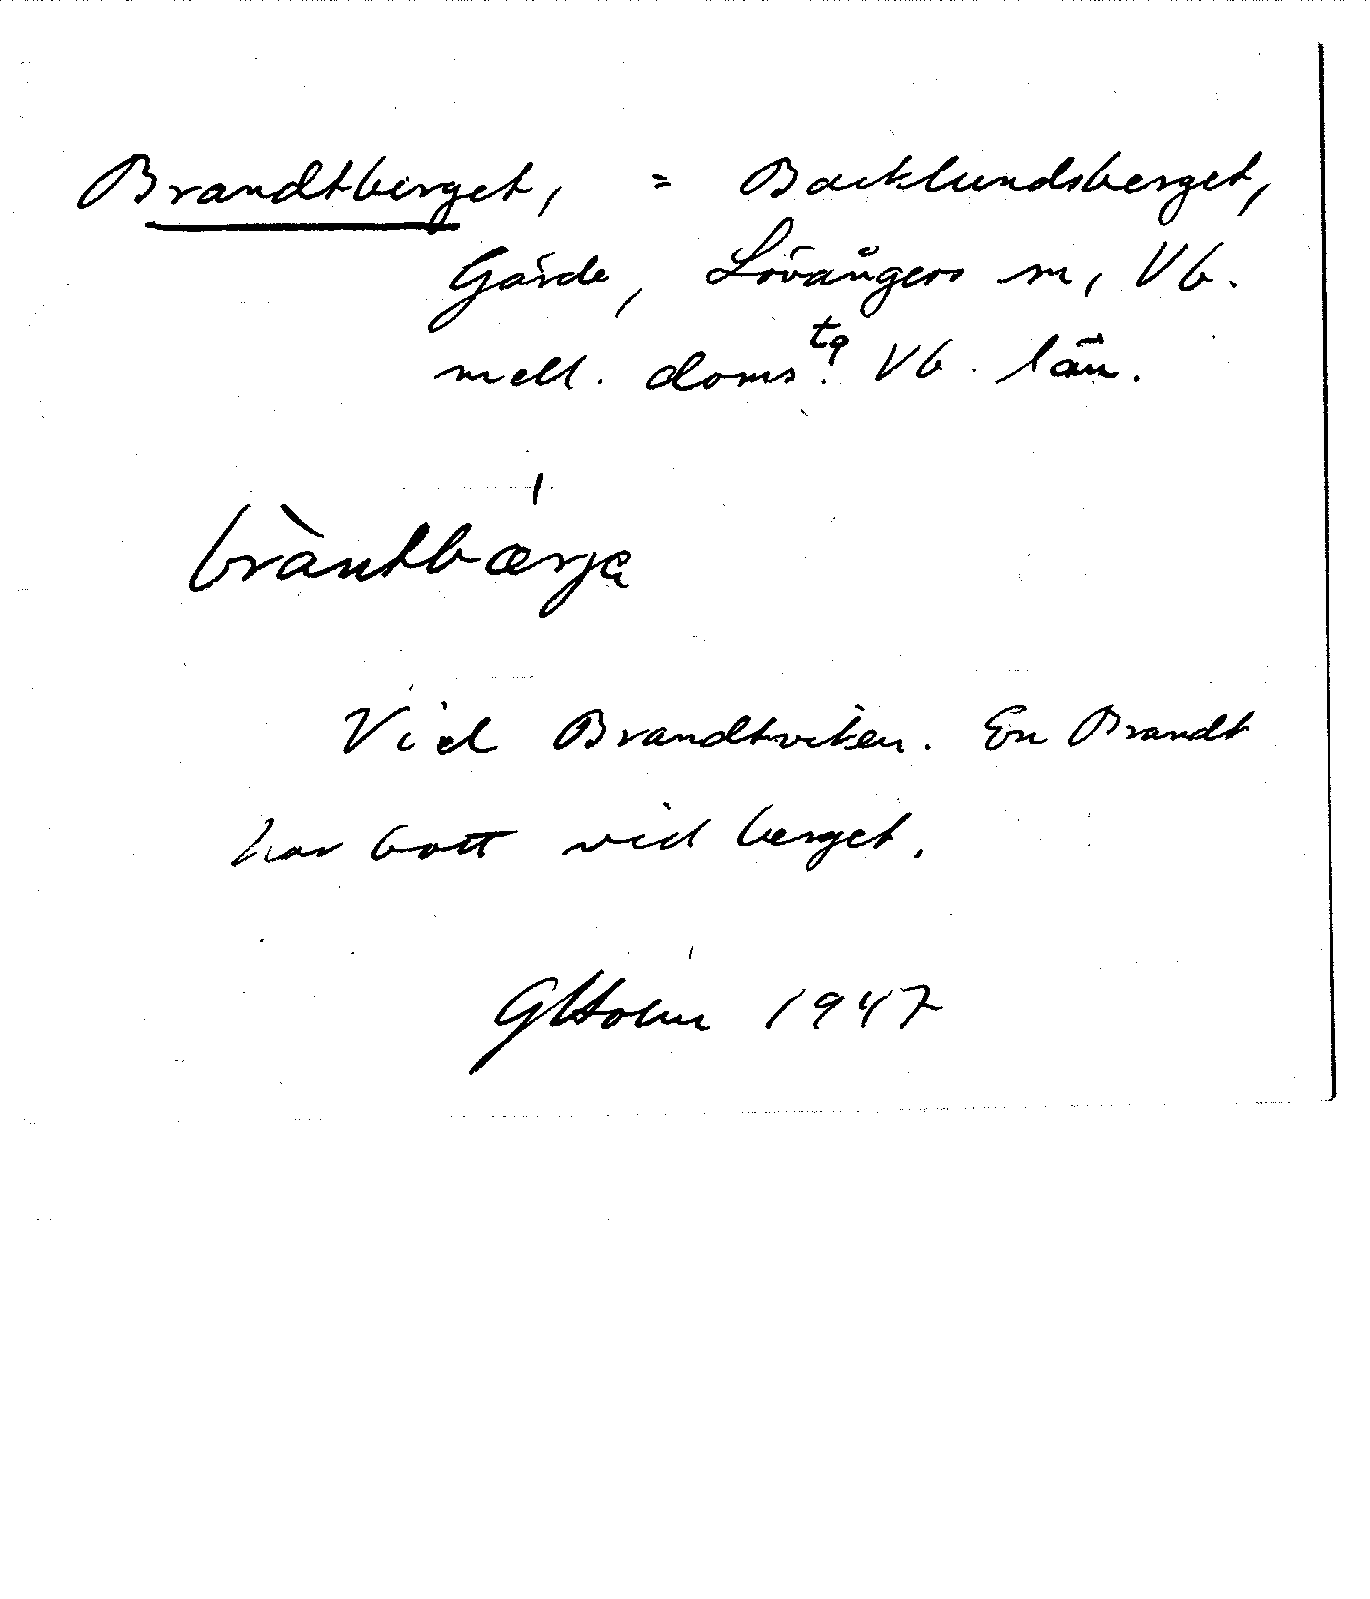 Brandtberget, = Backlundsberget,
Gärde, Lövångers sn, Vb.
mell. doms.tg Vb. län.
bràntbær̍ja
Vid Brandtviken. En Brandt
har bott vid berget.
GHolm 1947